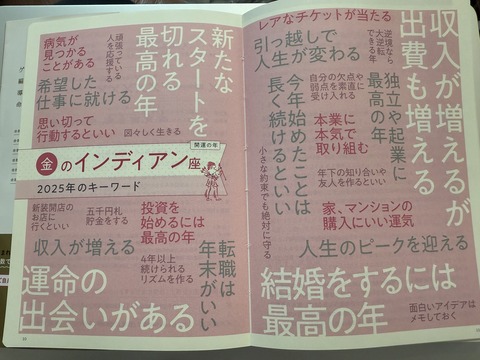 収入が増えるが
出費も増える
レアなチケットが当たる
逆境なら
大逆転
できる年
引っ越しで
人生が変わる
独立や起業に
最高の年
自分の欠点や
弱点を素直に
受け入れる
今年始めたことは
長く続けるといい
本業に
本気で
取り組む
年下の知り合いや
友人を作るといい
小さな約束でも絶対に守る
家、マンションの
購入にいい運気
人生のピークを迎える
結婚をするには
最高の年
面白いアイデアは
メモしておく
新たな
スタートを
切れる
最高の年
頑張っている
人を応援する
病気が
見つかる
ことがある
希望した
仕事に就ける
思い切って
行動するといい
図々しく生きる
開運の年
金のインディアン座
2025年のキーワード
新装開店の
お店に
行くといい
五千円札
貯金をする
投資を
始めるには
最高の年
転職は
年末がいい
収入が増える
4年以上
続けられる
リズムを作る
運命の
出会いがある